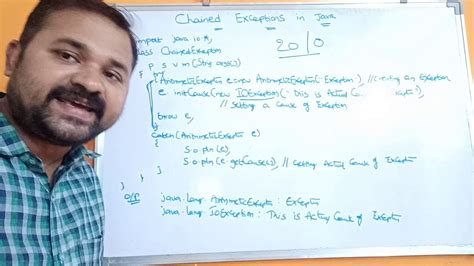 Chained Exceptions in Java
import java.io.*;
class ChainedException
{ p s v m (String args[])
20/0
{
ArithmeticException e = new ArithmeticException("Exception"); // Creating an Exception
e. initCause(new IOException("This is Actual Ca
// Setting a Cause of Exception
throw e;
}
catch (ArithmeticException e)
{
S.o.pln (e);
S.o.pln (e.getCause()); // Getting Actual Cause of Exceptn
}
}
}
O/P java.lang. ArithmeticException : Exceptn
java.lang. IOException : This is Actual Cause of Exceptn